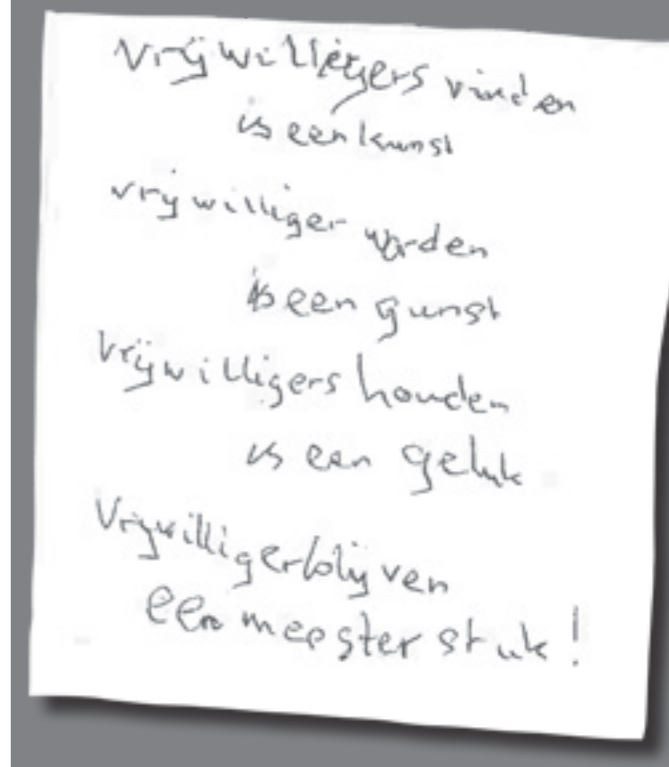 Vrijwilligers vinden
is een kunst
vrijwilliger worden
is een gunst
Vrijwilligers houden
is een geluk
Vrijwilliger blijven
een meesterstuk!